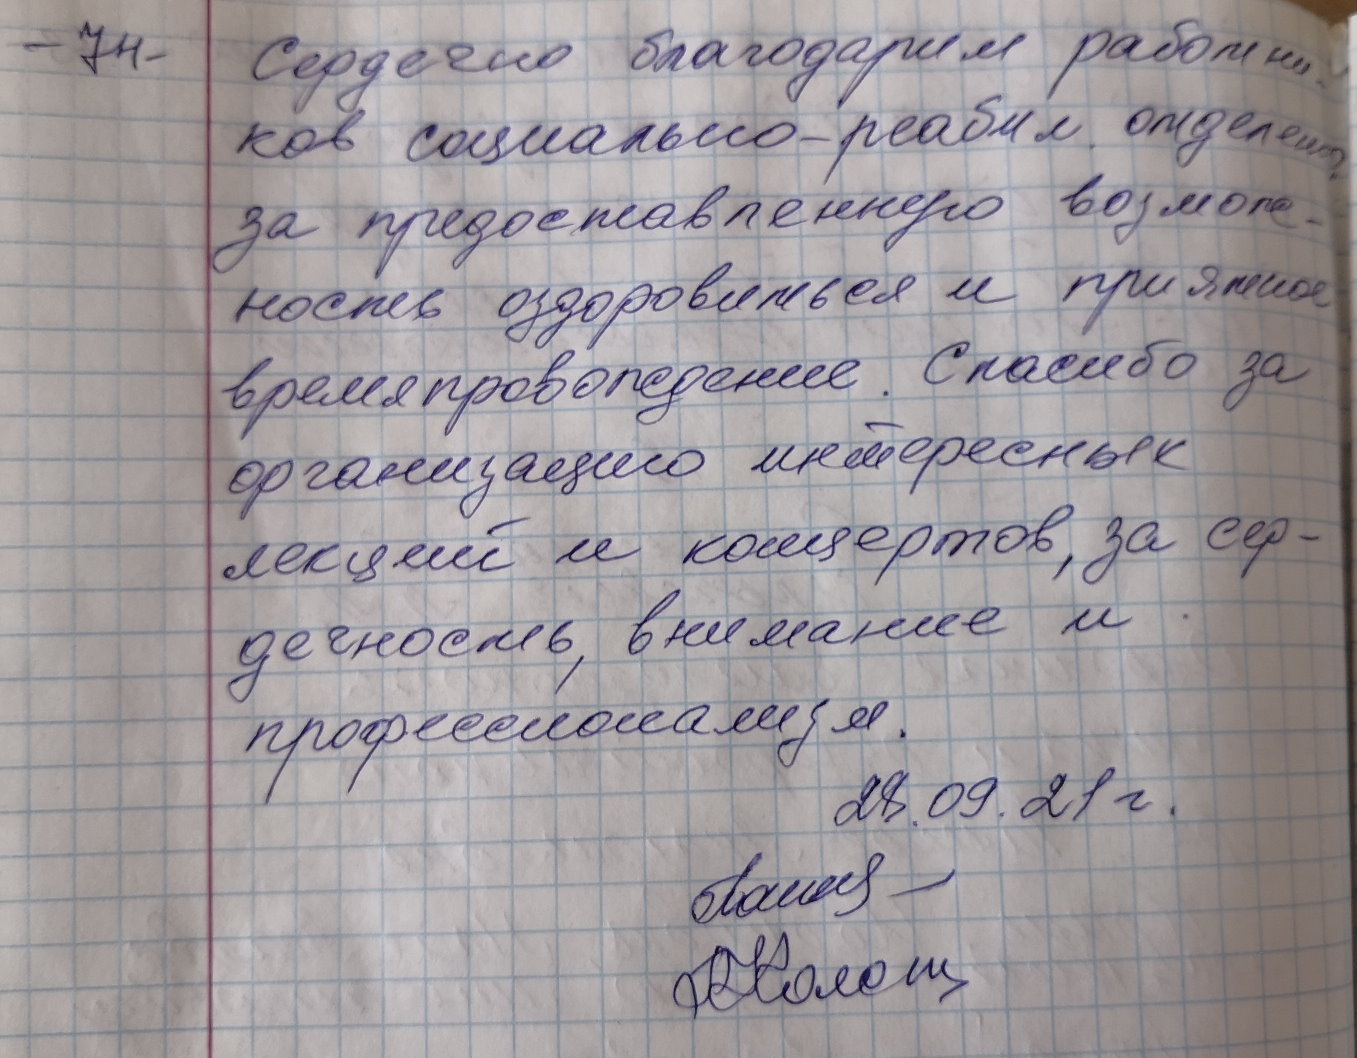 - 74 - Сердечно благодарим работни-
ков социально-реабил. отделения
за предоставленную возмож-
ность оздоровиться и приятное
времяпровождение. Спасибо за
организацию интересных
лекций и концертов, за сер-
дечность, внимание и
профессионализм.
28.09.21 г.